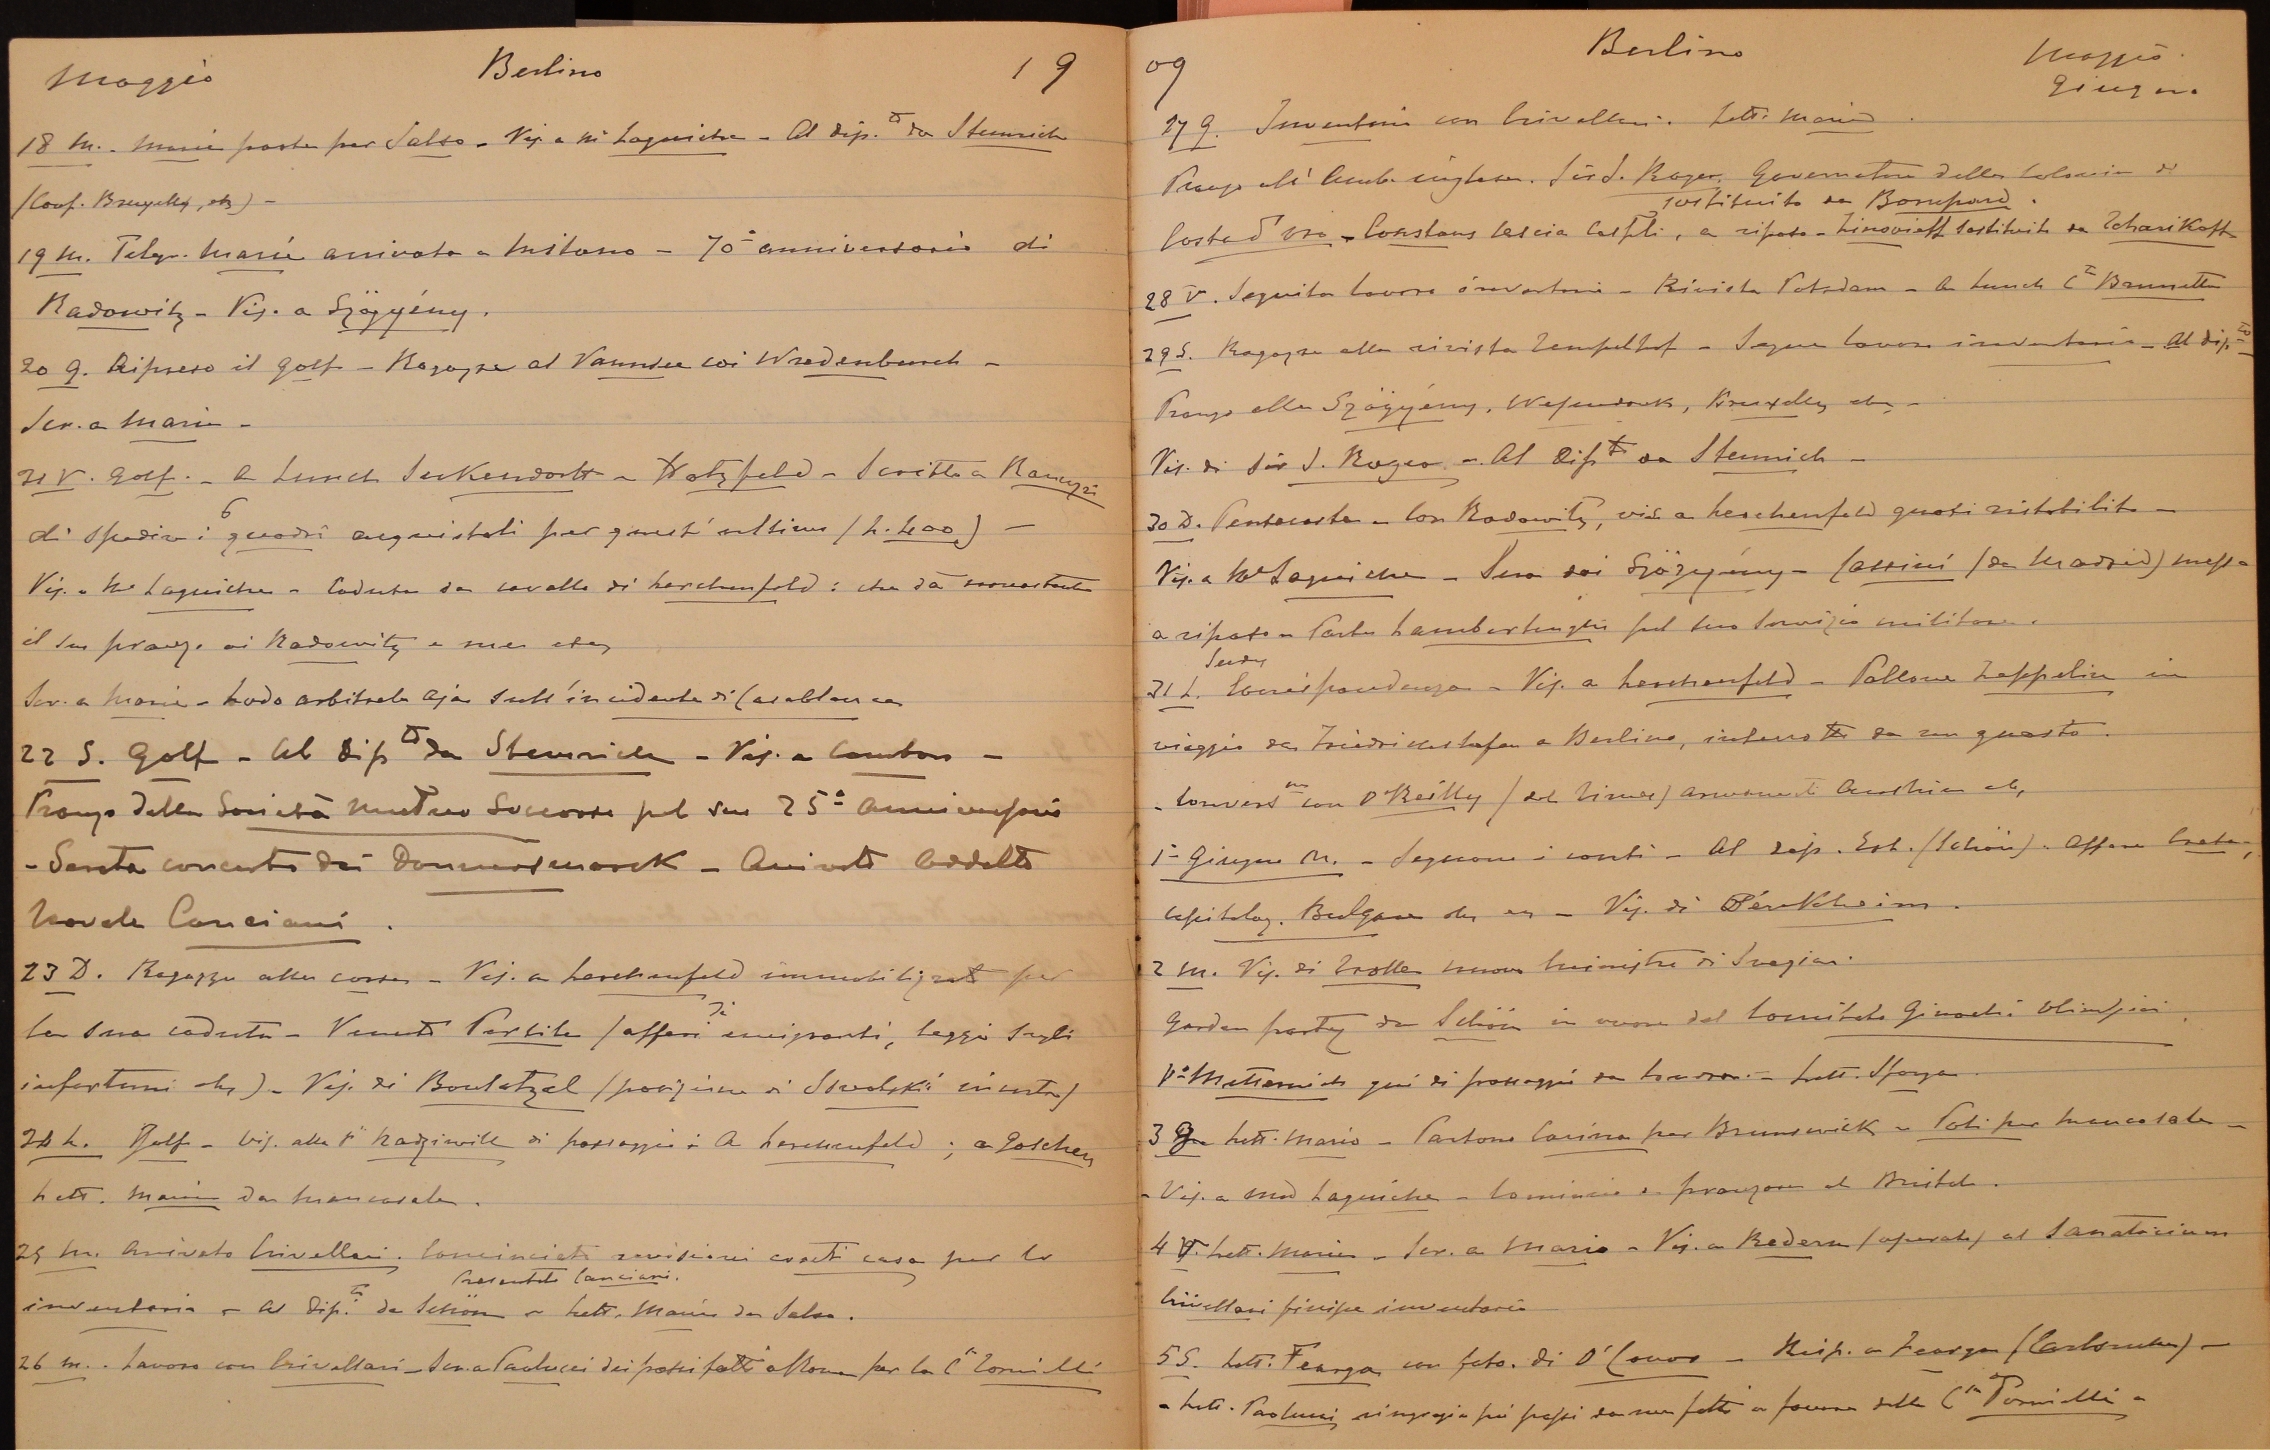 Maggio Berlino 19
18 M. Maria parte per Salso - Vis. a Me Laguiche - Al dip.to da Stemrich
(Conf. Bruxelles, etc) -
19 M. Telegr. Maria arrivata a Milano - 70° anniversario di
Radowitz - Vis. a Szögyény.
20 G. Ripreso il golf - Ragazze al Vannsee coi Wredenburch -
Scr. a Maria -
21 V. Golf. - A lunch Seckendorff - Hatzfeld - Scritto a
di spedire i 6 quadri acquistati per quest'ultimo (L. 400) -
Vis. a Me Laguiche - Caduta da cavallo di Lerchenfeld : che dà nonostante
il suo pranzo ai Radowitz e me etc
Scr. a Maria - Lodo arbitrale Aja sull'incidente di Casablanca
22 S. Golf - Al dip.to da Stemrich - Vis. a Cambon -
Pranzo della Società Mutuo Soccorso pel suo 25° anniversario
- Serata concerto dai Donnersmarck - Arrivato Addetto
Navale Canciani.
23 D. Ragazze alle corse - Vis. a Lerchenfeld immobilizzato per
la sua caduta - Venuto Pertile (affari di emigranti, legge sugli
infortuni etc) - Vis. di Boulatzel (posizione di Iswolski incerta)
24 L. Golf - Vis. alla Pssa Radziwill di passaggio : A Lerchenfeld ; a Goschen
Lett. Maria da Mancasale.
25 M. Arrivato Crivellari. Cominciata revisione conti casa per lo
Presentato Canciani.
inventario - Al dip.to da Schön - Lett. Maria da Salso.
26 M. Lavoro con Crivellari - Scr. a Paulucci dei passi fatti a Roma per la Cssa Tornielli
09 Berlino Maggio
Giugno
27 G. Inventario con Crivellari. Lett. Maria.
Pranzo all'Amb. inglese. Sir J. Roger, Governatore della Colonia di
sostituito da Bompard.
Costa d'oro - Constans lascia Cospli, a riposo - Zinovieff sostituito da Tcharikoff
28 V. Seguita lavoro inventario - Rivista Potsdam - A lunch Cssa Brunetta
29 S. Ragazze alla rivista Tempelhof - Segue lavoro inventario - Al dip.to
Pranzo alla Szögyény, Wesendonk, Bruxelles etc -
Vis. di Sir J. Roger - Al Dip.to da Stemrich -
30 D. Pentecoste - Con Radowitz, vis. a Lerchenfeld quasi ristabilito -
Vis. a Me Laguiche - Sera dai Szögyény - Cassini (da Madrid) messo
a riposo - Parte Lambertenghi pel suo servizio militare.
31 L. Corrispondenza - Vis. a Lerchenfeld - Pallone Zeppelin in
viaggio da Friedrichshafen a Berlino, interrotto da un guasto.
- Convers.ne con O'Reilly (del Times) armamenti Austria etc,
1° Giugno M. - Seguono i conti - Al dip. Est. (Schön). Affare Creta,
capitolaz. Bulgare etc - Vis. di Pérckheim.
2 M. Vis. di Trolle nuovo Ministro di Svezia.
Garden party da Schön in onore del Comitato Giuochi Olimpici.
Pe Metternich qui di passaggio da Londra - Lett. Sforza.
3 G. Lett. Mario - Partono Carina per Brunswick - Poti per Mancasale -
- Vis. a Me Laguiche - Comincio a pranzare al Bristol.
4 V. Lett. Maria - Scr. a Mario - Vis. a Redern (operato) al Sanatorium
Crivellari finisce inventario
5 S. Lett. Fearga con foto. di O'Conor - Risp. a Fearga (Carlsruhe) -
- Lett. Paolucci ringrazia pei passi da me fatti a favore della Cssa Tornielli -